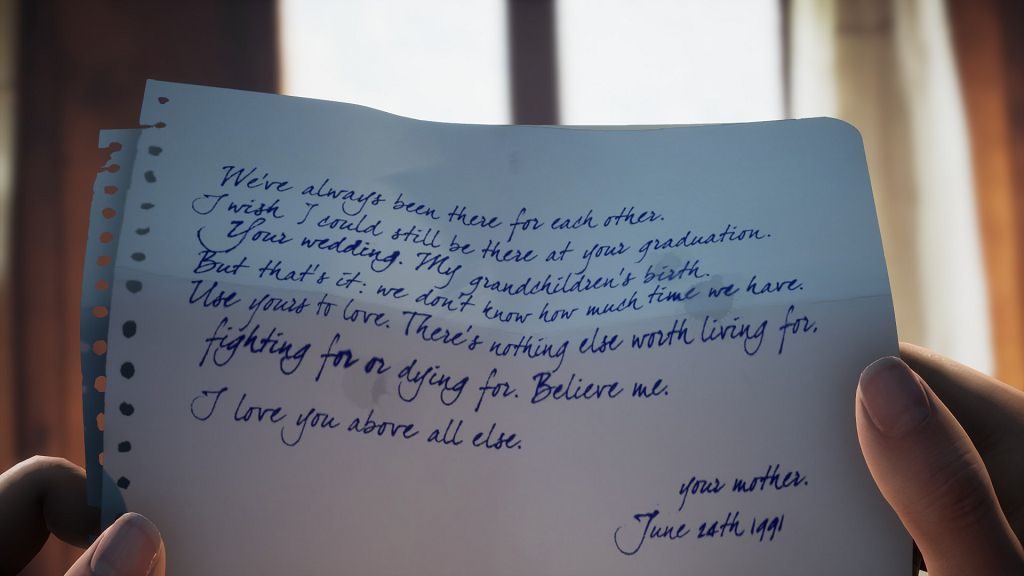 We've always been there for each other.
I wish I could still be there at your graduation.
Your wedding. My grandchildren's birth.
But that's it: we don't know how much time we have.
Use yours to love. There's nothing else worth living for,
fighting for or dying for. Believe me.
I love you above all else.
your mother.
June 24th 1991